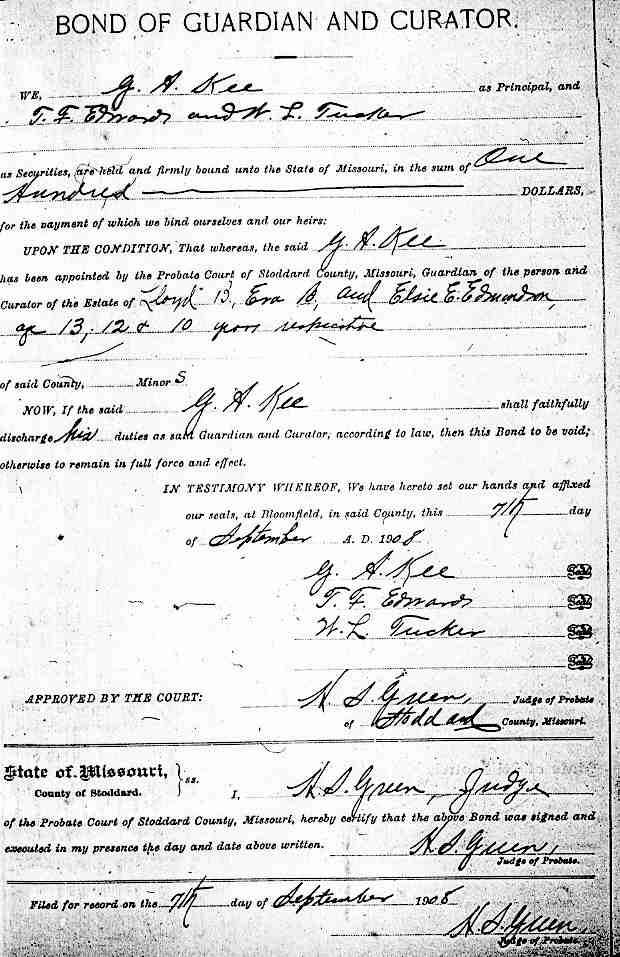 BOND OF GUARDIAN AND CURATOR.
WE, G. A. Kee as Principal, and
T. F. Edwards and W. L. Tucker
as Securities, are held and firmly bound unto the State of Missouri, in the sum of One
Hundred DOLLARS,
for the payment of which we bind ourselves and our heirs:
UPON THE CONDITION, That whereas, the said G. A. Kee
has been appointed by the Probate Court of Stoddard County, Missouri, Guardian of the person and
Curator of the Estate of Lloyd B, Eva B, and Elsie E. Edmundson,
age 13, 12 & 10 years respective
of said County, Minor s
NOW, If the said G. A. Kee shall faithfully
discharge his duties as said Guardian and Curator, according to law, then this Bond to be void;
otherwise to remain in full force and effect.
IN TESTIMONY WHEREOF, We have hereto set our hands and affixed
our seals, at Bloomfield, in said County, this 7th day
of September A. D. 1908
G. A. Kee Seal
T. F. Edwards Seal
W. L. Tucker Seal
Seal
APPROVED BY THE COURT: H. S. Green, Judge of Probate
of Stoddard County, Missouri.
State of Missouri, } ss.
County of Stoddard. I, H. S. Green, Judge
of the Probate Court of Stoddard County, Missouri, hereby certify that the above Bond was signed and
executed in my presence the day and date above written. H. S. Green,
Judge of Probate.
Filed for record on the 7th day of September 1908
H. S. Green,
Judge of Probate.